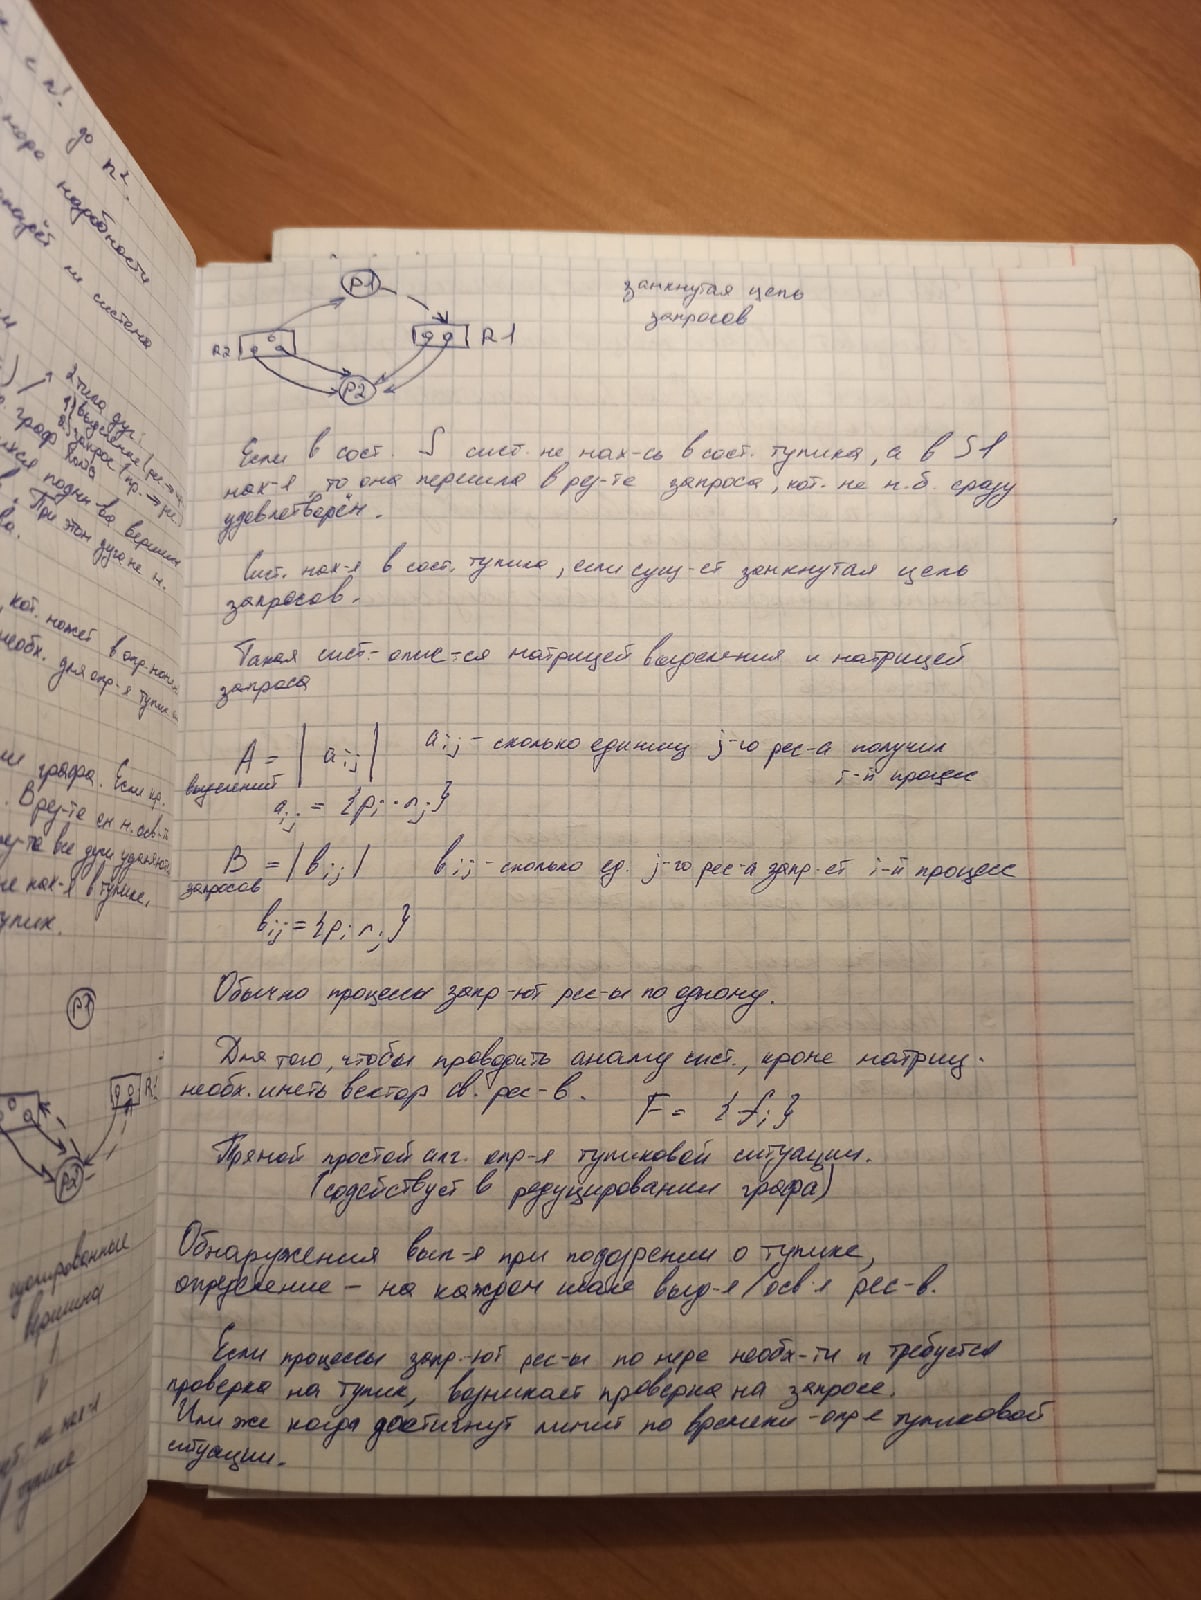 с n! до n².
надобности
ли система
2 типа дуг:
1) выделение (рес→
2) запрос (пр.→ре
граф вида
вершин
При этом дуга не м.
кот. может в опр.
необх. для опр-я тупик
ли графа. Если пр.
В рез-те он м. осв-ть
рез-те все дуги удаляют
не нах-я в тупике,
тупик.
P1
R1
P2
вершина
не нах-я
в тупике
P1
замкнутая цепь
запросов
R2
R1
P2
Если в сост. S сист. не нах-сь в сост. тупика, а в S1
нах-я, то она перешла в рез-те запроса, кот. не м.б. сразу
удовлетворён.
Сист. нах-я в сост. тупика, если сущ-ет замкнутая цепь
запросов.
Такая сист. опис-ся матрицей выделения и матрицей
запроса
A = | aij | aij - сколько единиц j-го рес-а получил
выделений i-й процес
aij = {pi · rj}
B = | bij | bij - сколько ед. j-го рес-а запр-ет i-й процесс
запросов
bij = {pi rj}
Обычно процессы запр-ют рес-ы по одному.
Для того, чтобы проводить анализ сист., кроме матриц.
необх. иметь вектор св. рес-в. F = {fi}
Прямой простой алг. опр-я тупиковой ситуации.
(содействует в редуцировании графа)
Обнаружения вып-я при подозрении о тупике,
определение - на каждом шаге выд-я/осв-я рес-в.
Если процессы запр-ют рес-ы по мере необх-ти и требуется
проверка на тупик, возникает проверка на запросе.
Или же когда достигнут лимит по времени - опр-е тупиковой
ситуации.